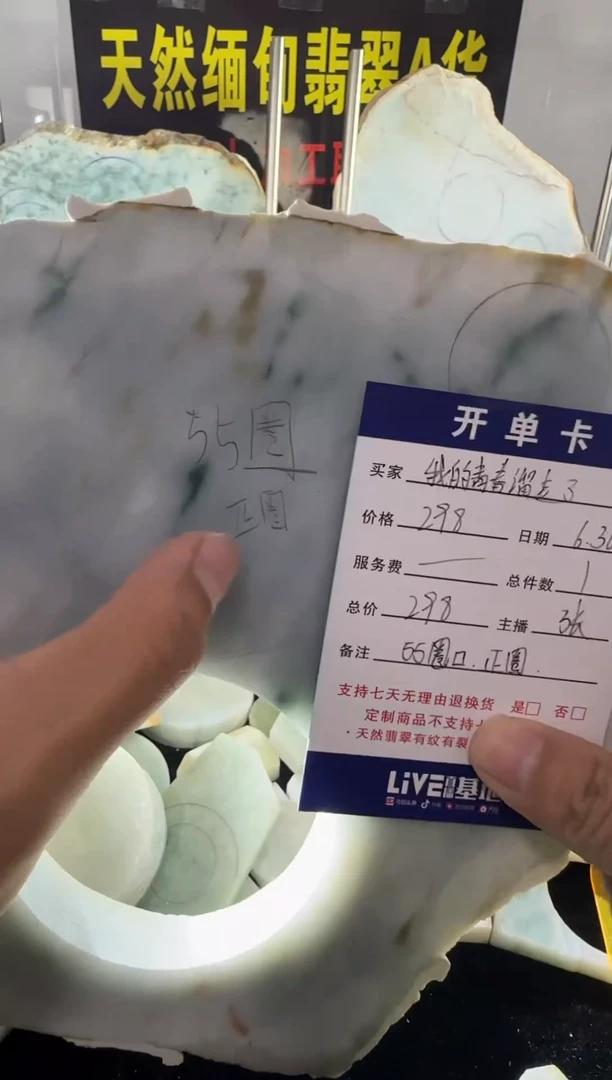 天然缅甸翡翠A货
工
55圈
正圈
开单卡
买家 我的青春溜走了
价格 298 日期 6.30
服务费 — 总件数 1
总价 298 主播 张
备注 55圈口.正圈.
支持七天无理由退换货 是□ 否□
定制商品不支持
·天然翡翠有纹有裂
LiVE直播基地